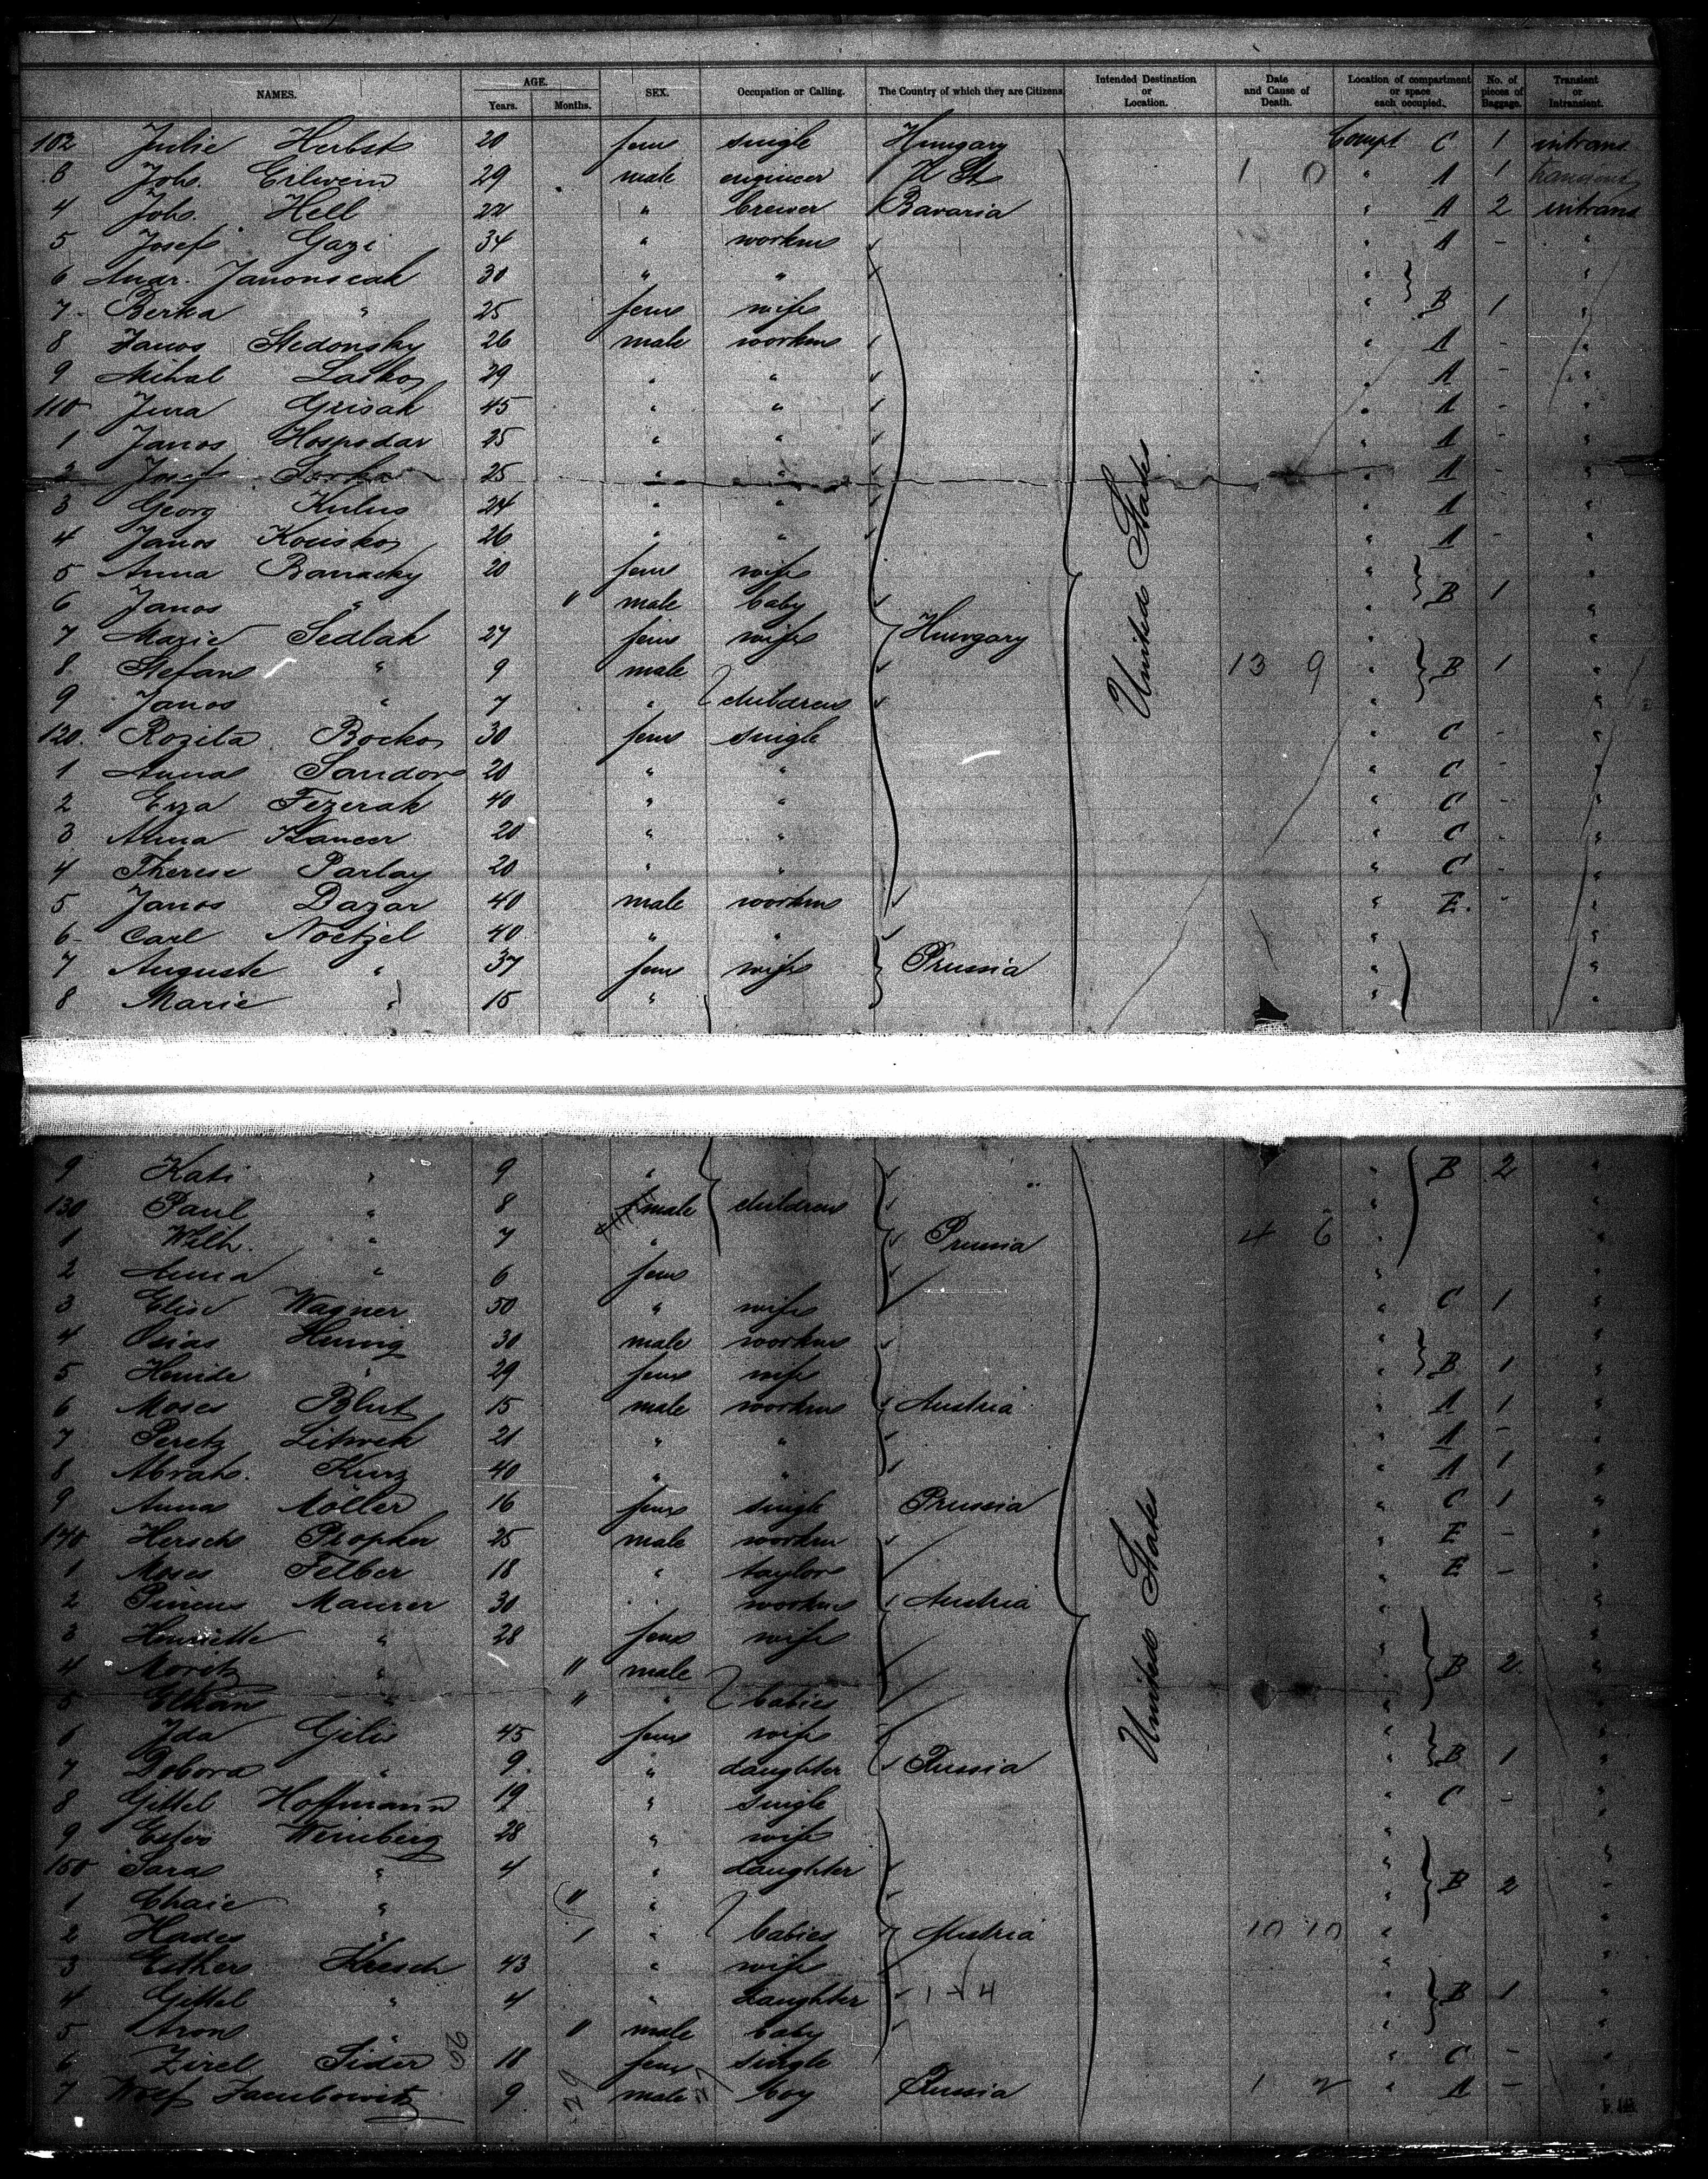 NAMES. AGE. Years. Months. SEX. Occupation or Calling. The Country of which they are Citizens Intended Destination or Location. Date and Cause of Death. Location of compartment or space each occupied. No. of pieces of Baggage. Transient or Intransient.
102 Julie Herbst 20 fem single Hungary Compt C 1 intrans
3 Joh. Erlwein 29 male engineer U St 1 0 " A 1 transient
4 Joh. Hell 22 " brewer Bavaria " A 2 intrans
5 Josef Gazi 34 " workm " A - "
6 Andr. Janonscak 30 " " " "
7 Berka " 25 fem wife " B 1 "
8 Janos Stedonsky 26 male workm " A - "
9 Mihal Lasko 29 " " " A - "
110 Jura Grisak 45 " " " A - "
1 Janos Hospodar 25 " " " A - "
2 Josef 25 " " " A - "
3 Georg Kulus 24 " " " A - "
4 Janos Kouisko 26 " " " A - "
5 Anna Banacky 20 fem wife " "
6 Janos " 11 male baby " B 1 "
7 Marie Sedlak 27 fem wife Hungary " "
8 Stefan " 9 male 13 9 " B 1 "
9 Janos " 7 " children " "
120. Rozila Bocko 30 fem single " C - "
1 Anna Sandor 20 " " " C - "
2 Erza Fezerak 40 " " " C - "
3 Anna Kancer 20 " " " C - "
4 Therese Parlay 20 " " " C - "
5 Janos Dazar 40 male workm " E. - "
6 Carl Noetzel 40 " " " "
7 Auguste " 37 fem wife Prussia " "
8 Marie " 15 " " "
United States
9 Kati " 9 " " B 2 "
130 Paul " 8 male children " "
1 Wilh. " 7 " Prussia 4 6 " "
2 Anna " 6 fem " "
3 Elise Wagner 50 " wife " C 1 "
4 Osias Hennig 30 male workm " "
5 Henide " 29 fem wife " B 1 "
6 Moses Blut 15 male workm Austria " A 1 "
7 Peretz Litwek 21 " " " A - "
8 Abrah. Kurz 40 " " " A 1 "
9 Anna Möller 16 fem single Prussia " C 1 "
140 Hersch Propker 25 male workm " E - "
1 Moses Felber 18 " taylor " E - "
2 Pincus Maurer 30 " workm Austria " "
3 Henriette " 28 fem wife " "
4 Moritz " 11 male " B 2 "
5 Elkan " 11 " babies " "
6 Ida Gilis 45 fem wife " "
7 Debora " 9 " daughter Russia " B 1 "
8 Gittel Hoffmann 19 " single " C - "
9 Ester Weinberg 28 " wife " "
150 Sara " 4 " daughter " "
1 Chaie " 11 " " B 2 "
2 Hades " 1 " babies Austria 10 10 " "
3 Esther Kresch 43 " wife " "
4 Gittel " 4 " daughter 1 + 4 " B 1 "
5 Aron " 11 male baby "
6 Zirel Sider 18 fem single " C - "
7 Wolf 9 male boy Russia 1 2 " A - "
United States